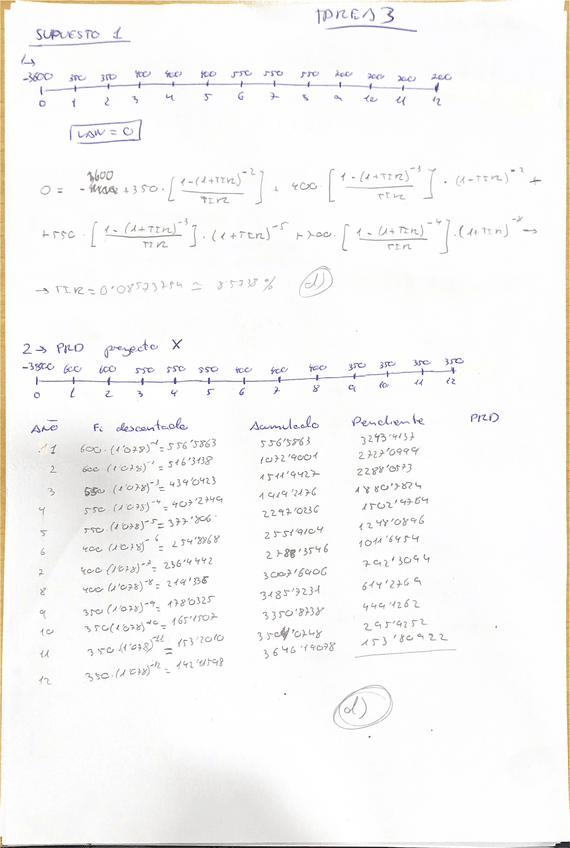 TAREA 3
SUPUESTO 1
-3600 350 350 400 400 400 550 550 550 200 200 200 200
0 1 2 3 4 5 6 7 8 9 10 11 12
VAN = 0
3600
0 = - + 350 · [ 1-(1+TIR)^-2 / TIR ] + 400 · [ 1-(1+TIR)^-3 / TIR ] · (1+TIR)^-2 +
+ 550 · [ 1-(1+TIR)^-3 / TIR ] · (1+TIR)^-5 + 200 · [ 1-(1+TIR)^-4 / TIR ] · (1+TIR)^-8 →
→ TIR = = 8'5738 % d)
2 → PRD proyecto X
-3800 600 600 550 550 550 400 400 400 350 350 350 350
0 1 2 3 4 5 6 7 8 9 10 11 12
AÑO Fi descontado Acumulado Pendiente PRD
1 600·(1'078)^-1 = 556'5863 556'5863 3243'4137
2 600·(1'078)^-1 = 516'3138 1072'9001 2727'0999
3 550·(1'078)^-3 = 439'0423 1511'9427 2288'0573
4 550·(1'078)^-4 = 407'2749 1919'2176 1880'7824
5 550·(1'078)^-5 = 377'806 2297'0236 1502'9764
6 400·(1'078)^-6 = 254'8868 2551'9104 1248'0896
7 400·(1'078)^-7 = 236'4442 2788'3546 1011'6454
8 400·(1'078)^-8 = 219'336 3007'6906 792'3094
9 350·(1'078)^-9 = 178'0325 3185'7231 614'2769
10 350(1'078)^-10 = 165'1507 3350'8738 449'1262
11 350·(1'078)^-11 = 153'2010 3504'0748 295'9252
12 350·(1'078)^-12 = 142'11598 3646'19078 153'80922
d)